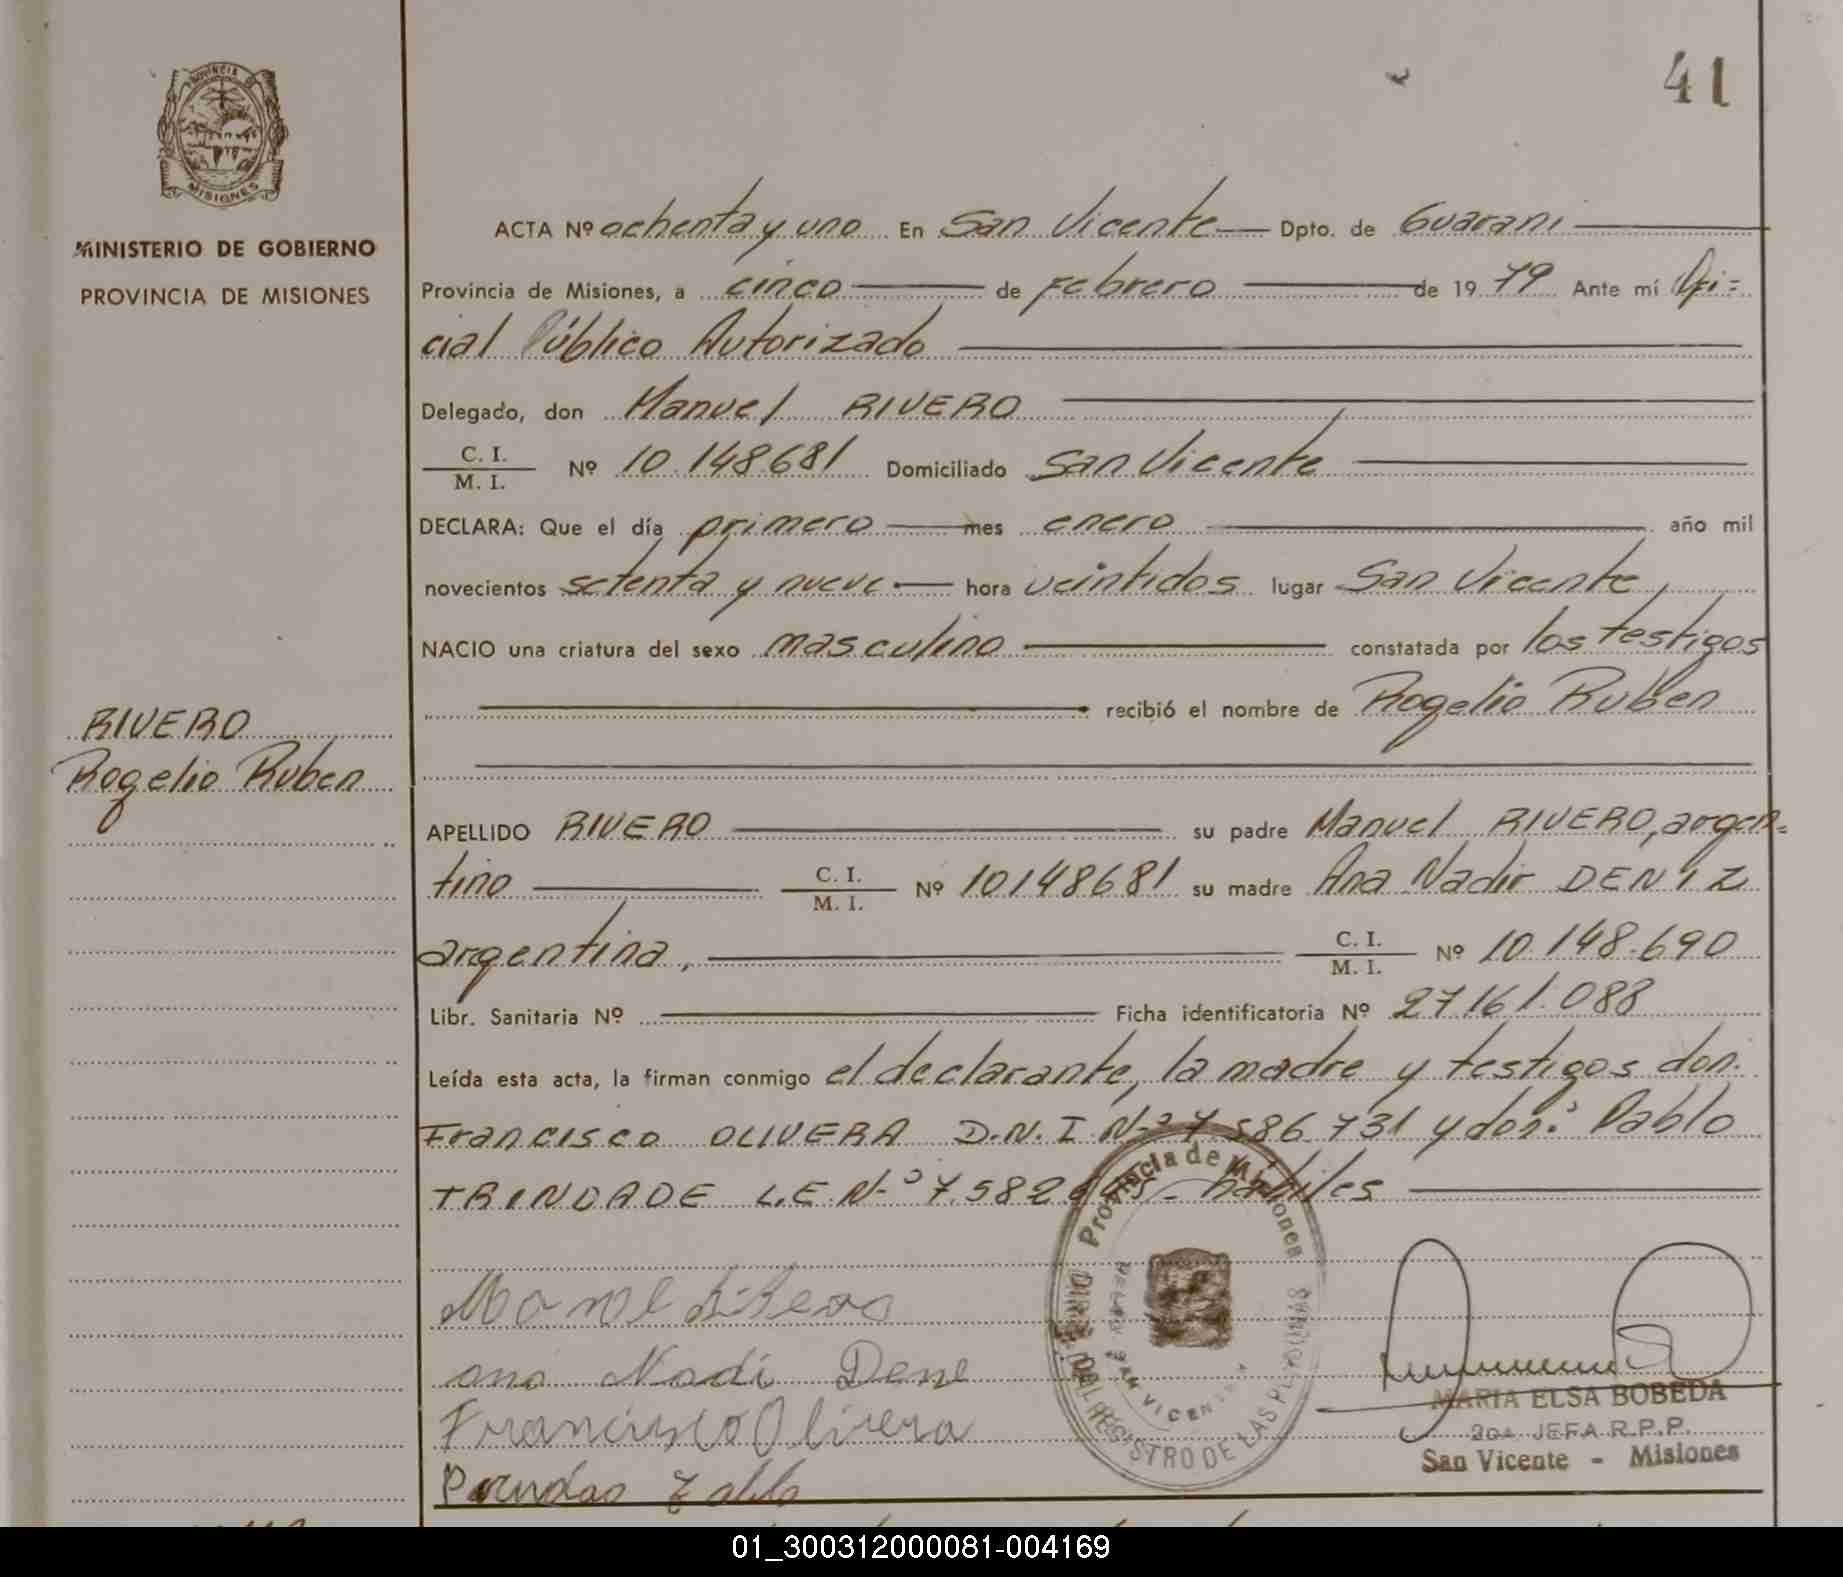 41
PROVINCIA DE
MISIONES
MINISTERIO DE GOBIERNO
PROVINCIA DE MISIONES
ACTA Nº ochenta y uno En San Vicente Dpto. de Guarani
Provincia de Misiones, a cinco de Febrero de 19 79 Ante mí Ofi=
cial Público Autorizado
Delegado, don Manuel RIVERO
C. I.
M. I. Nº 10.148681 Domiciliado San Vicente
DECLARA: Que el día primero mes enero año mil
novecientos setenta y nueve hora veintidos lugar San Vicente,
NACIO una criatura del sexo masculino constatada por los testigos
recibió el nombre de Rogelio Ruben
RIVERO
Rogelio Ruben
APELLIDO RIVERO su padre Manuel RIVERO, argen=
tino C. I.
M. I. Nº 10148681 su madre Ana Nadir DENIZ
argentina, C. I.
M. I. Nº 10.148.690
Libr. Sanitaria Nº Ficha identificatoria Nº 27.161.088
Leída esta acta, la firman conmigo el declarante, la madre y testigos don.
Francisco OLIVERA D.N.I N-º 7.586.731 y don: Pablo
TRINDADE L.E. N-º 7.582 habiles
Provincia de Misiones
REGISTRO DE LAS PERSONAS
SAN VICENTE
Ana Nadi Dene
Francisco Olivera
MARIA ELSA BOBEDA
2da JEFA R.P.P.
San Vicente - Misiones
01_300312000081-004169